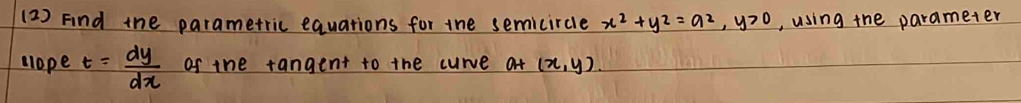 (2) Find the parametric equations for the semicircle x² + y² = a², y>0, using the parameter
slope t = dy/dx of the tangent to the curve at (x,y).